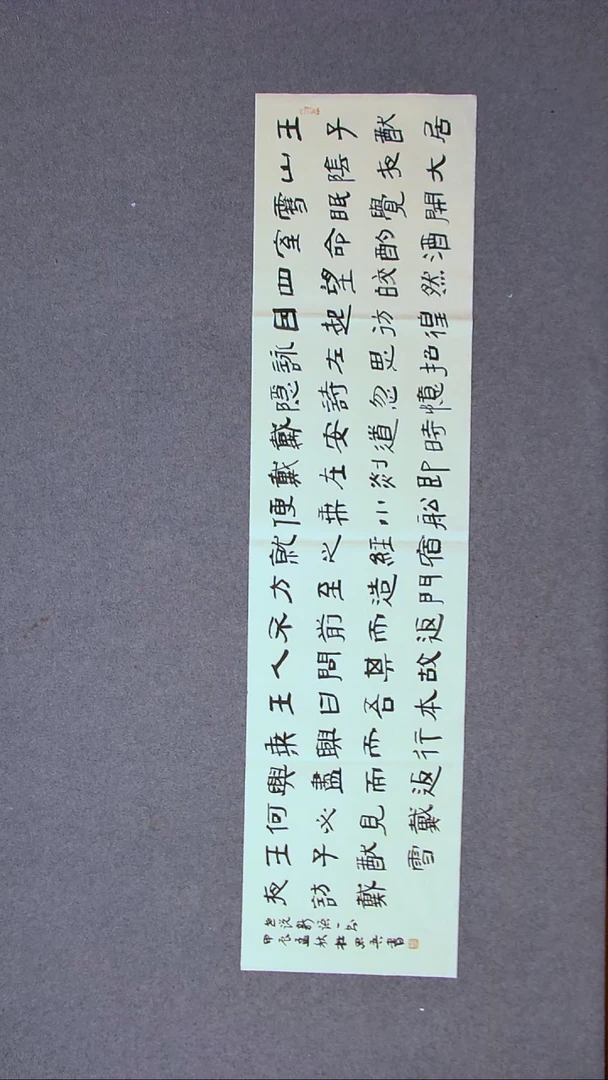 王子猷居
山陰夜大
雪眠覺開
室命酌酒
四望皎然
因起彷徨
詠左思招
隐詩忽憶
戴安道時
戴在剡即
便乘小船
就之經宿
方至造門
不前而返
人問其故
王曰吾本
乘興而行
興盡而返
何必見戴
王子猷雪
夜訪戴
世说新語一则
甲辰孟秋杜書